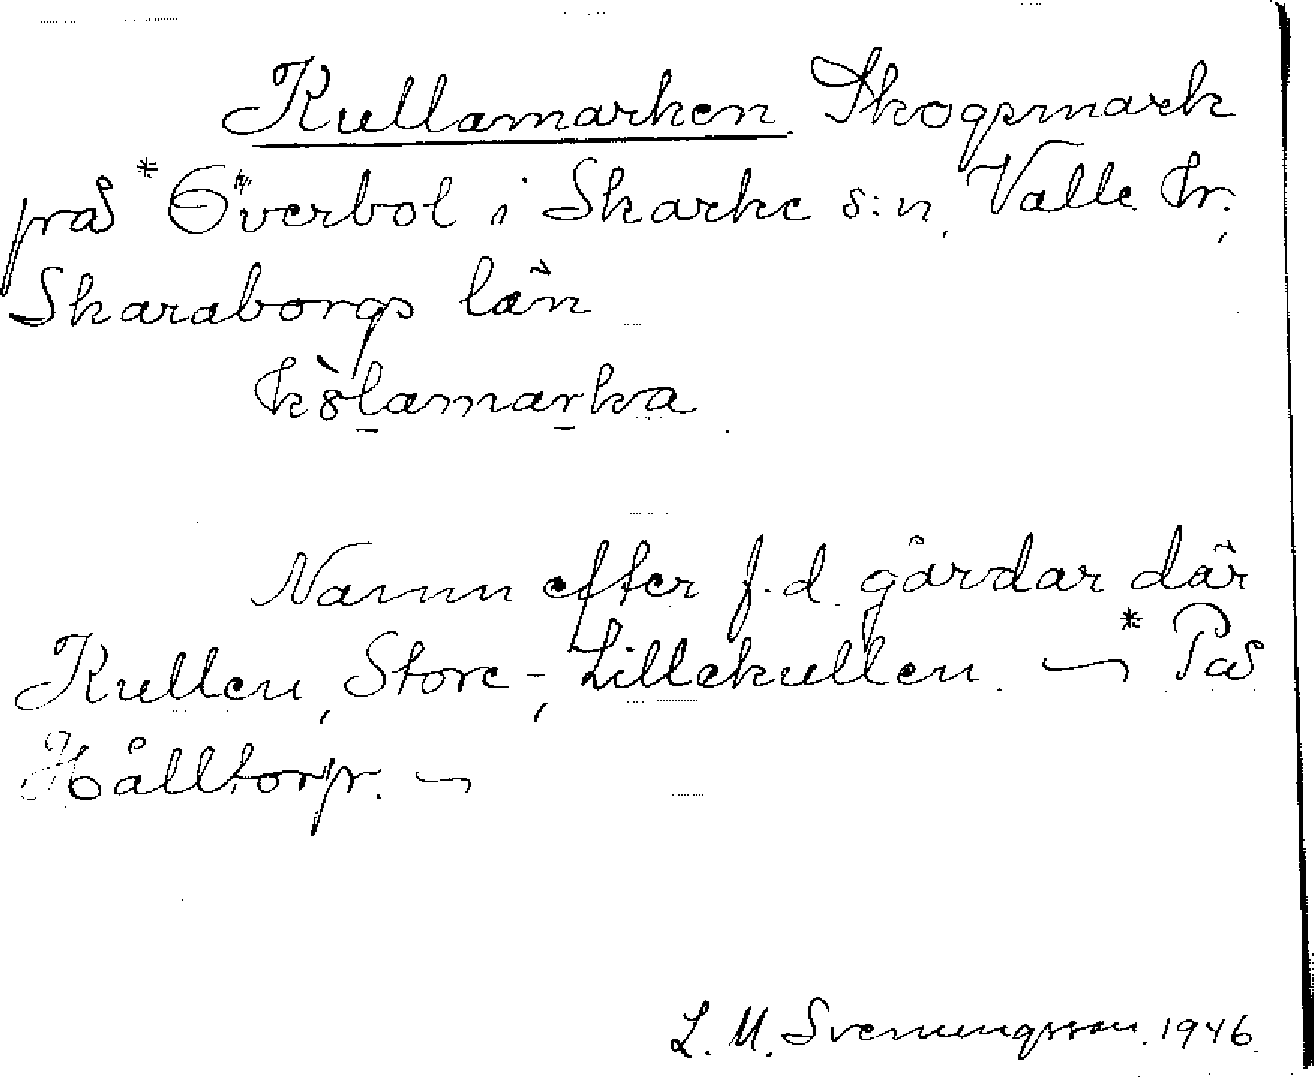 Kullamarken. Skogsmark
på *Överbol i Skarke s:n, Valle hr.,
Skaraborgs län
kòlamarka.
Namn efter f.d. gårdar där
Kullen, Store-, Lillekullen. — *På
Hålltorp. —
L. M. Svenungsson. 1946.